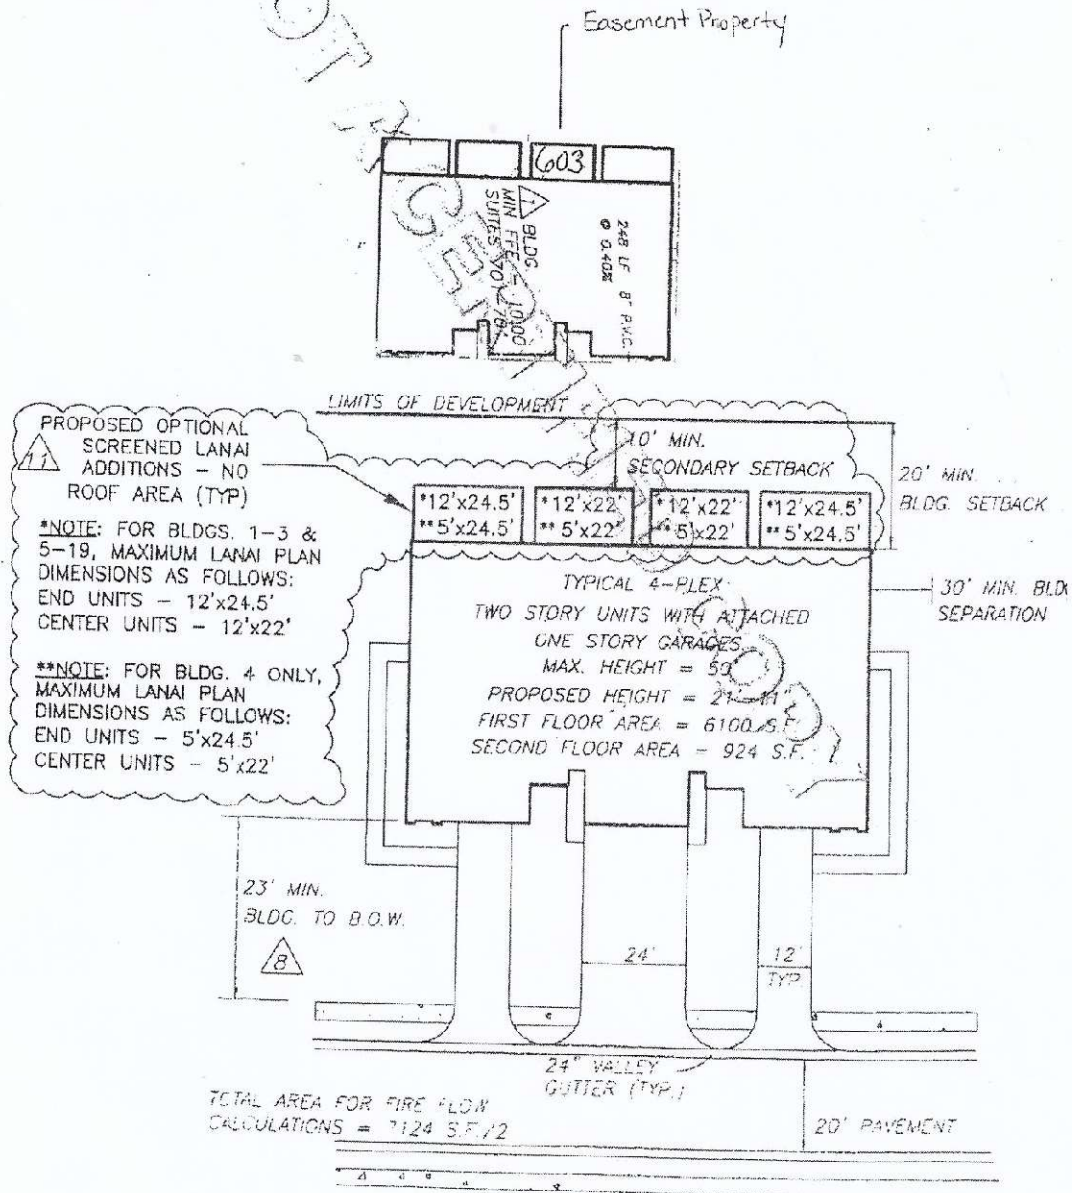 Easement Property
603
1
BLDG.
MIN FFE - 10.00
SUITES 701-704
248 LF 8" P.V.C.
@ 0.40%
NOT A CERTIFIED COPY
LIMITS OF DEVELOPMENT
PROPOSED OPTIONAL
SCREENED LANAI
11
ADDITIONS - NO
ROOF AREA (TYP)
*NOTE: FOR BLDGS. 1-3 &
5-19, MAXIMUM LANAI PLAN
DIMENSIONS AS FOLLOWS:
END UNITS - 12'x24.5'
CENTER UNITS - 12'x22'
**NOTE: FOR BLDG. 4 ONLY,
MAXIMUM LANAI PLAN
DIMENSIONS AS FOLLOWS:
END UNITS - 5'x24.5'
CENTER UNITS - 5'x22'
10' MIN.
SECONDARY SETBACK
20' MIN.
BLDG. SETBACK
*12'x24.5' *12'x22' *12'x22' *12'x24.5'
**5'x24.5' **5'x22' **5'x22' **5'x24.5'
TYPICAL 4-PLEX:
TWO STORY UNITS WITH ATTACHED
ONE STORY GARAGES
MAX. HEIGHT = 50'
PROPOSED HEIGHT = 21'-11"
FIRST FLOOR AREA = 6100 S.F.
SECOND FLOOR AREA - 924 S.F.
30' MIN. BLD
SEPARATION
23' MIN.
BLDG. TO B.O.W.
8
24'
12'
TYP.
24" VALLEY
GUTTER (TYP.)
TOTAL AREA FOR FIRE FLOW
CALCULATIONS = 7124 S.F./2
20' PAVEMENT